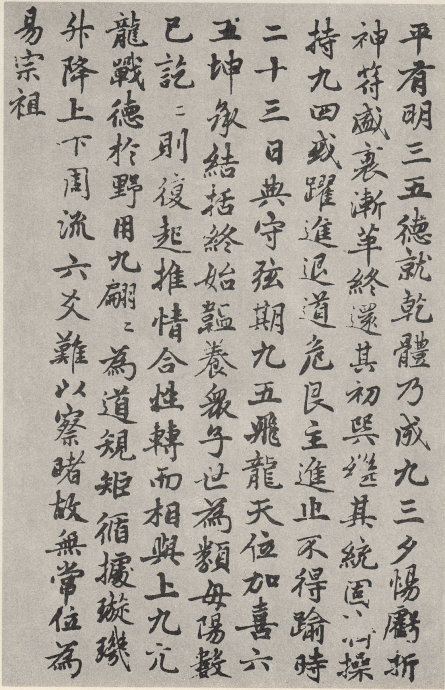 平有明三五德就乾體乃成九三夕惕虧折
神符盛衰漸革終還其初巽繼其統固操
持九四或躍進退道危艮主進止不得踰時
二十三日典守弦期九五飛龍天位加喜六
五坤承結括終始韞養衆子世為類母陽數
已訖〻則復起推情合性轉而相與上九亢
龍戰德於野用九翩〻為道規矩循據璇璣
升降上下周流六爻難以察睹故無常位為
易宗祖